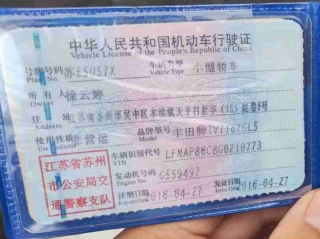 中华人民共和国机动车行驶证
Vehicle License of the People's Republic of China
号牌号码 苏E5U57X 车辆类型 小型轿车
所有人 徐云婷
住址 江苏省苏州市吴中区木渎镇天平村新华
使用性质 非营运 品牌型号 丰田牌TV7167GL5
江苏省苏州
市公安局交
通警察支队
车辆识别代号 LFMAP86C8G0210773
VIN
发动机号码 G559497
注册日期 2016-04-27 发证日期 2016-04-27